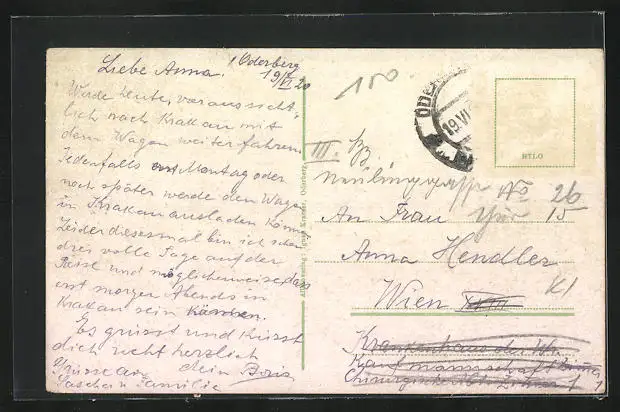 Oderberg
Liebe Anna! 19/VI 20
Werde heute, voraussicht-
lich nach Krakau mit
dem Wagen weiterfahren.
Jedenfalls erst Montag oder
noch später werde den Wagen
in Krakau ausladen können
Leider diesesmal bin ich schon
drei volle Tage auf der
Reise und möglicherweise, dass
erst morgen Abends in
Krakau sein können.
Es grüsst und küsst
dich recht herzlich
dein
Grüsse an
Familie
150
19 VI
RTLO
III. Bz.
Neulinggasse No 26
Thür 15
An Frau
Anna Hendler
Wien XVIII
Krankenhaus der Wr.
Kaufmannschaft